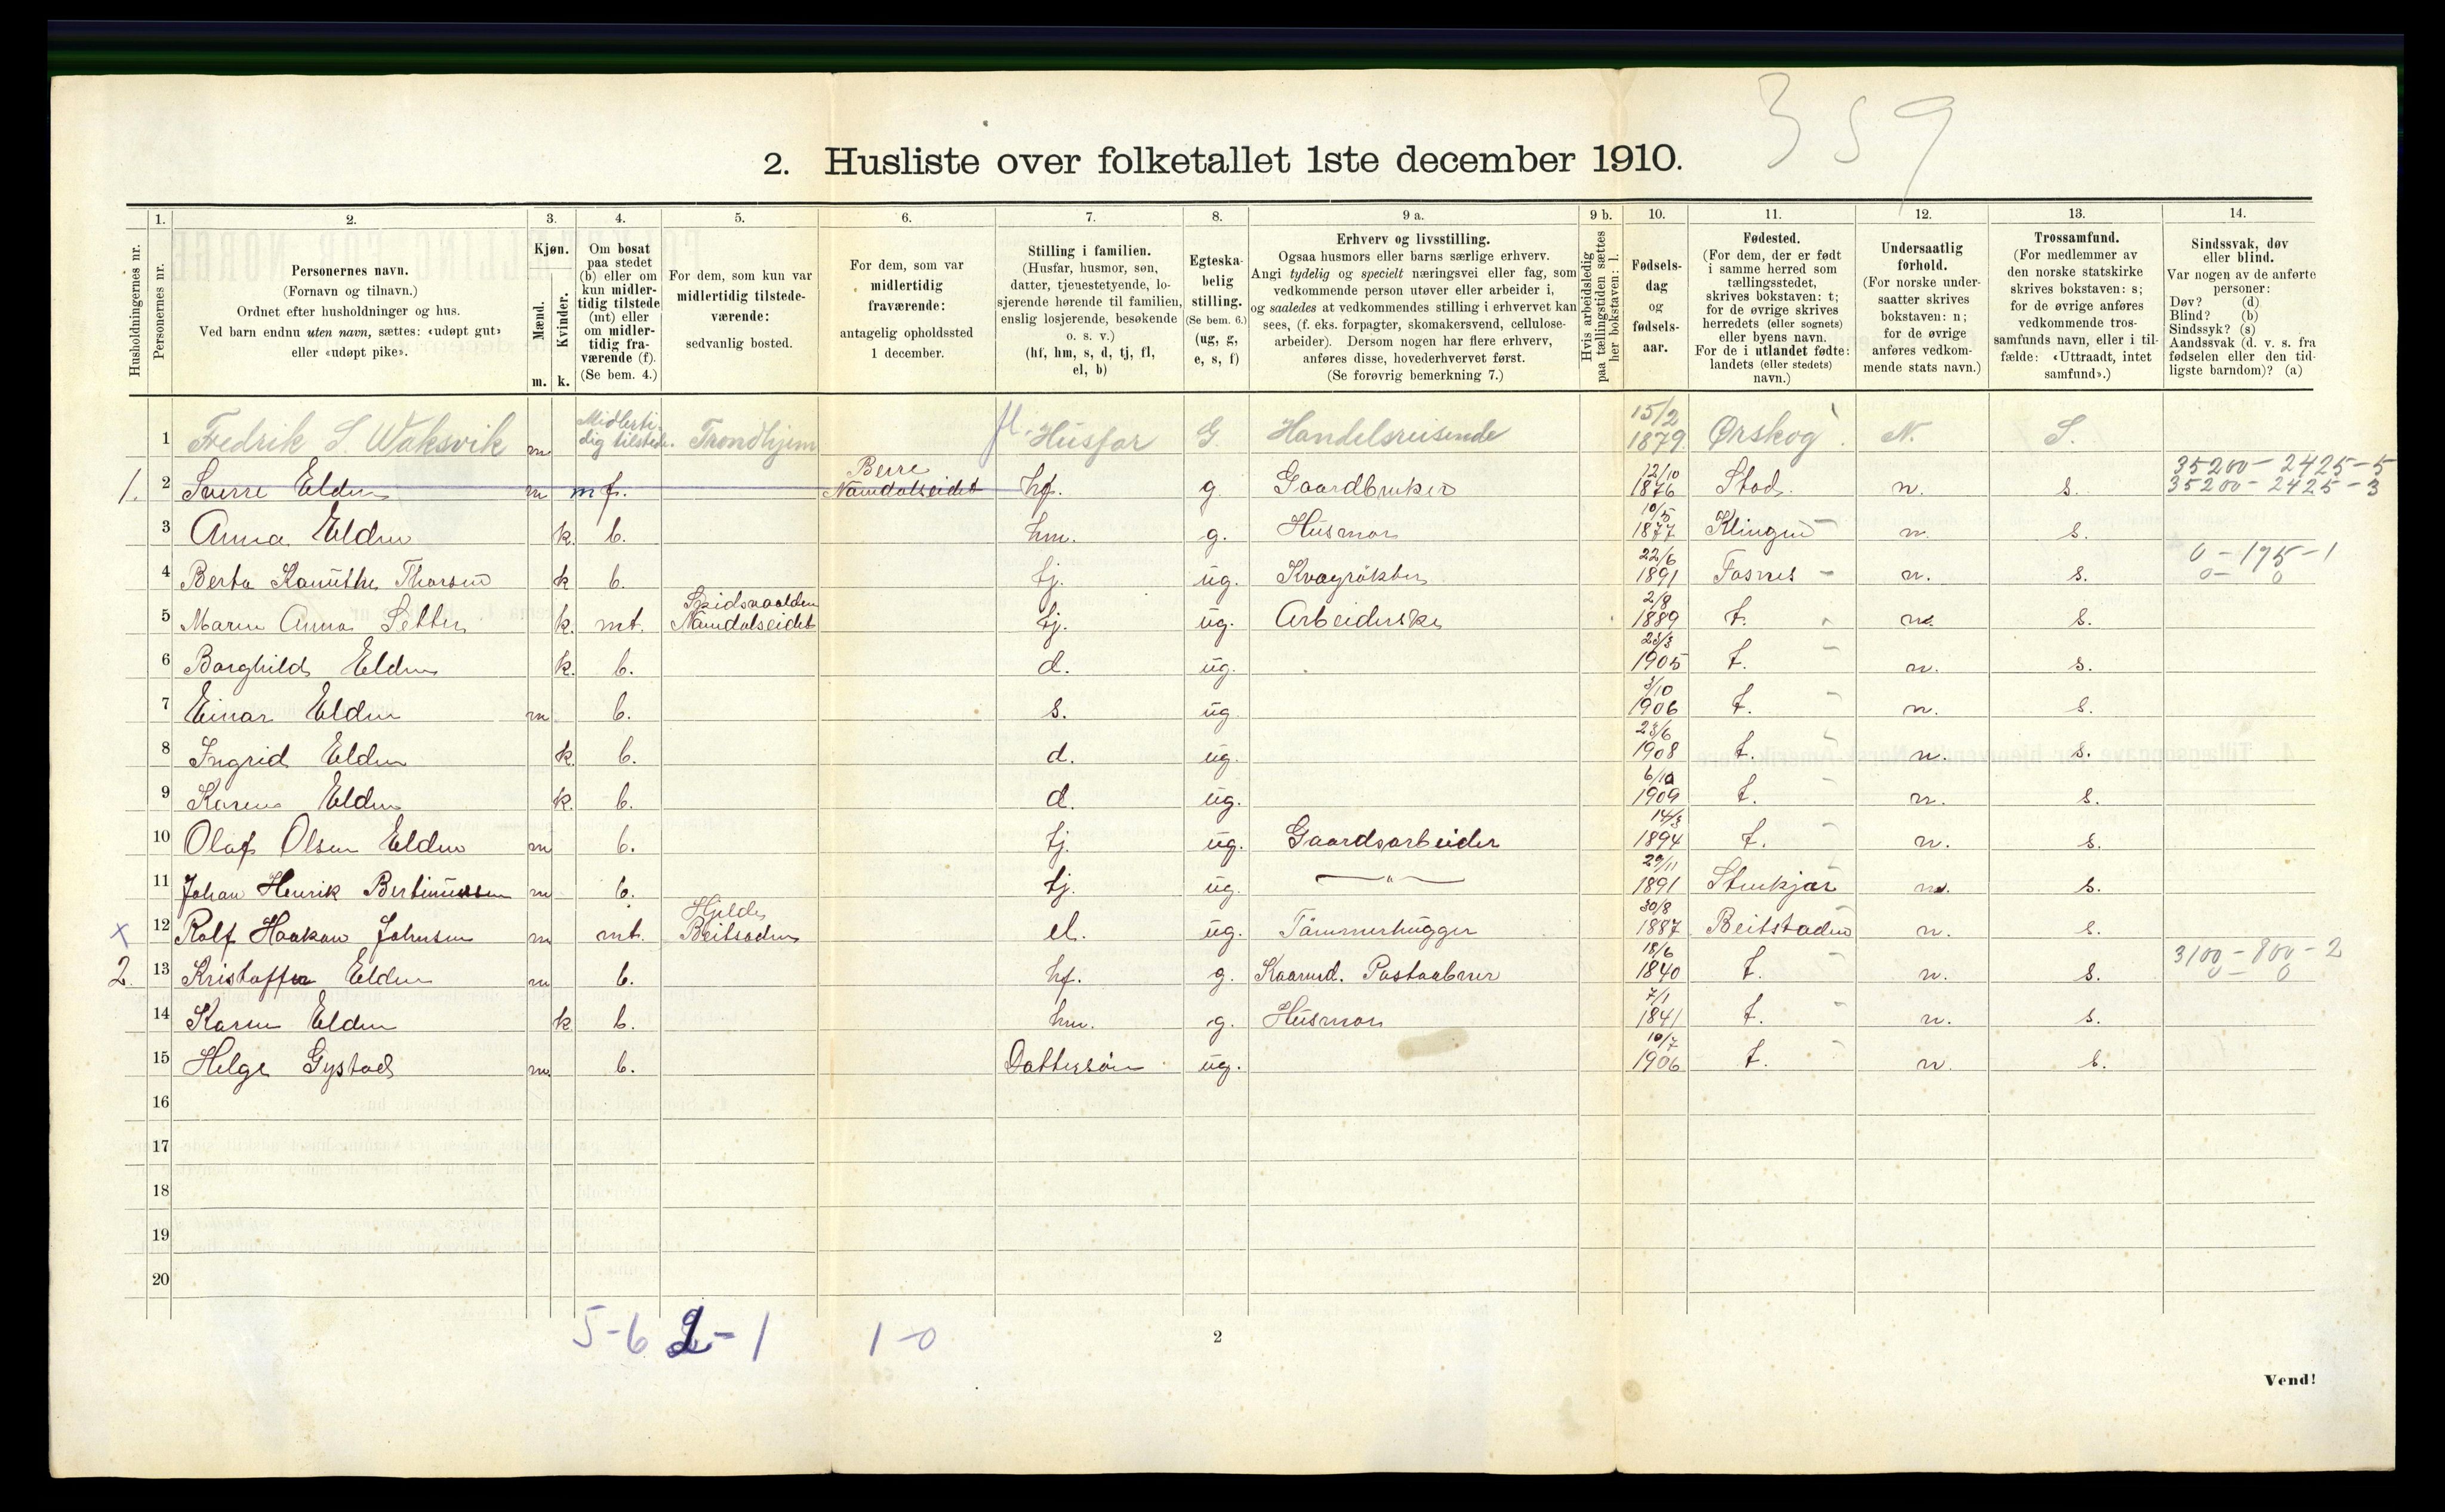 359
2. Husliste over folketallet 1ste december 1910.
Husholdningernes nr.
1. Personernes nr.
2. Personernes navn.
(Fornavn og tilnavn.)
Ordnet efter husholdninger og hus.
Ved barn endnu uten navn, sættes: «udøpt gut»
eller «udøpt pike».
3. Kjøn.
Mænd. m.
Kvinder. k.
4. Om bosat
paa stedet
(b) eller om
kun midler-
tidig tilstede
(mt) eller
om midler-
tidig fra-
værende (f).
(Se bem. 4.)
5. For dem, som kun var
midlertidig tilstede-
værende:
sedvanlig bosted.
6. For dem, som var
midlertidig
fraværende:
antagelig opholdssted
1 december.
7. Stilling i familien.
(Husfar, husmor, søn,
datter, tjenestetyende, lo-
sjerende hørende til familien,
enslig losjerende, besøkende
o. s. v.)
(hf, hm, s, d, tj, fl,
el, b)
8. Egteska-
belig
stilling.
(Se bem. 6.)
(ug, g,
e, s, f)
9 a. Erhverv og livsstilling.
Ogsaa husmors eller barns særlige erhverv.
Angi tydelig og specielt næringsvei eller fag, som
vedkommende person utøver eller arbeider i,
og saaledes at vedkommendes stilling i erhvervet kan
sees, (f. eks. forpagter, skomakersvend, cellulose-
arbeider). Dersom nogen har flere erhverv,
anføres disse, hovederhvervet først.
(Se forøvrig bemerkning 7.)
9 b. Hvis arbeidsledig
paa tællingstiden sættes
her bokstaven: l.
10. Fødsels-
dag
og
fødsels-
aar.
11. Fødested.
(For dem, der er født
i samme herred som
tællingsstedet,
skrives bokstaven: t;
for de øvrige skrives
herredets (eller sognets)
eller byens navn.
For de i utlandet fødte:
landets (eller stedets)
navn.)
12. Undersaatlig
forhold.
(For norske under-
saatter skrives
bokstaven: n;
for de øvrige
anføres vedkom-
mende stats navn.)
13. Trossamfund.
(For medlemmer av
den norske statskirke
skrives bokstaven: s;
for de øvrige anføres
vedkommende tros-
samfunds navn, eller i til-
fælde: «Uttraadt, intet
samfund».)
14. Sindssvak, døv
eller blind.
Var nogen av de anførte
personer:
Døv? (d)
Blind? (b)
Sindssyk? (s)
Aandssvak (d. v. s. fra
fødselen eller den tid-
ligste barndom)? (a)
1 Fredrik S. Waksvik m Midlerti-dig tilstede. Trondhjem fl. Husfar G. Handelsreisende 15/2 1879. Ørskog. N. S.
1. 2 Sverre Elden m mf. Berre Namdalseidet hf. g. Gaardbruker 12/10 1876 Stod. n. s. 35200 - 2425 - 5
35200 - 2425 - 3
3 Anna Elden k. b. hm. g. Husmor 10/5 1877 Klingen n. s.
4 Berta Kanutte Thorsen k b. tj. ug. Kvægrökter 22/6 1891 Fosnes n. s. 0 - 195 - 1
0 - 0
5 Maren Anna Setter k. mt. Namdalseidet tj. ug. Arbeiderske 2/8 1889 t. n. s.
6 Borghild Elden k. b. d. ug. 23/3 1905 t. n. s.
7 Einar Elden m b. s. ug 3/10 1906 t. n. s.
8 Ingrid Elden k. b. d. ug. 23/6 1908 t. n. s.
9 Karen Elden k. b. d. ug. 6/10 1909 t. n. s.
10 Olaf Olsen Elden m b. tj. ug. Gaardsarbeider 14/3 1894 t. n. s.
11 Johan Henrik Bertinussen m b. tj. ug. — " — 29/11 1891 Stenkjær n. s.
x 12 Rolf Haakon Johnsen m mt. Hjelde Beitsaden el. ug. Tømmerhugger 30/8 1887 Beitstaden n. s.
2. 13 Kristoffer Elden m b. hf. g. Kaarmd. Postaabner 18/6 1840 t. n. s. 3100 - 800 - 2
0 - 0
14 Karen Elden k b. hm. g. Husmor 7/1 1841 t. n. s.
15 Helge Gystad m. b. Dattersön ug. 10/7 1906 t. n. s.
16
17
18
19
20
5-6 2-1 1-0
2
Vend!